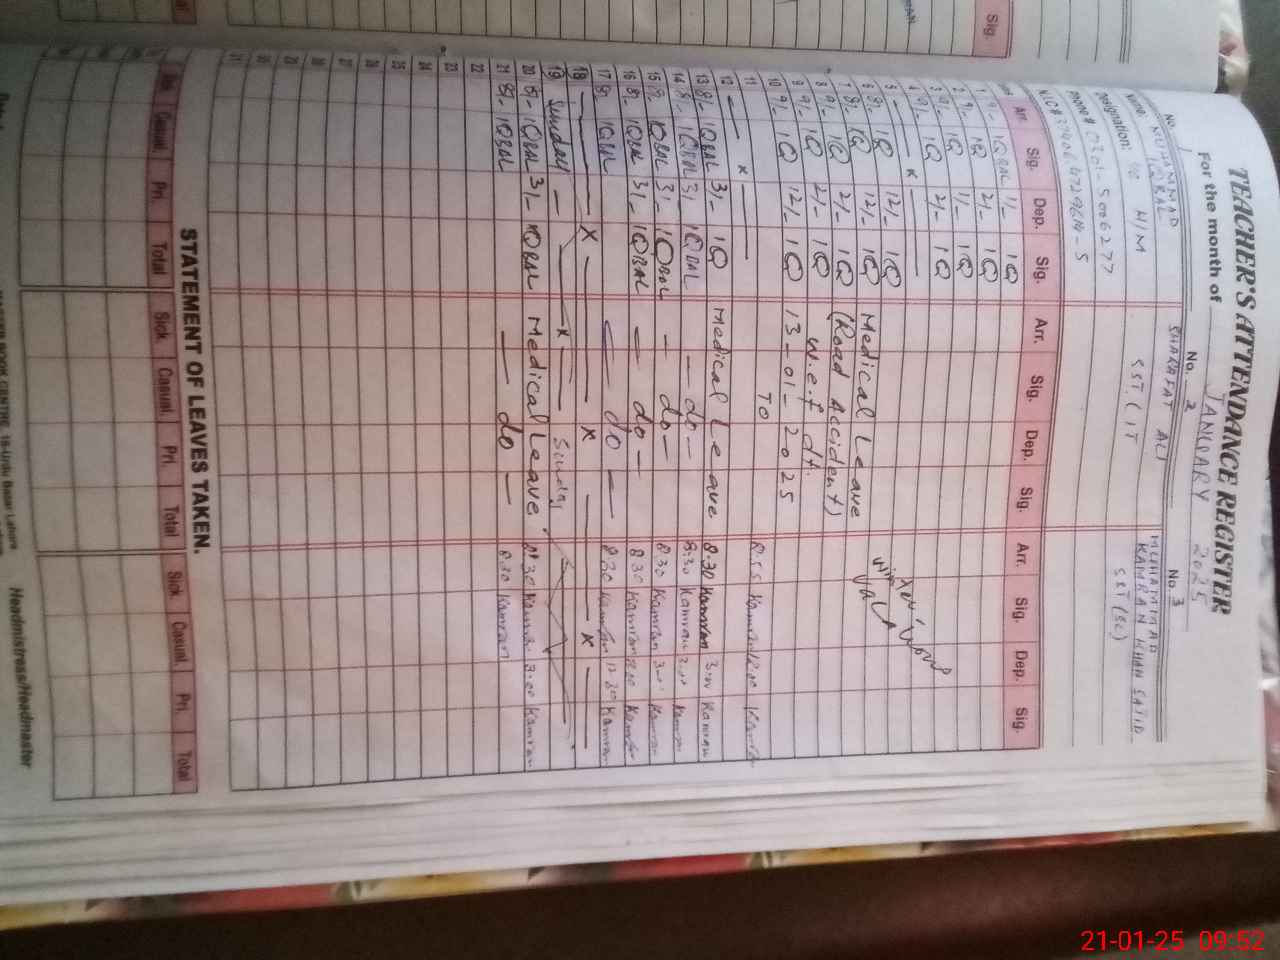 TEACHER'S ATTENDANCE REGISTER
For the month of JANUARY 2025
No. 1 No. 2 No. 3
Name: MUHAMMAD IQBAL SHARAFAT ALI MUHAMMAD KAMRAN KHAN SAJID
Designation: H/M SST (IT SST (SC)
Phone # 0301-5006277
N.I.C #
Arr. Sig. Dep. Sig. Arr. Sig. Dep. Sig. Arr. Sig. Dep. Sig.
1 9/- IQBAL 1/- IQ
2 9/- IQ 2/- IQ
3 9/- IQ 1/- IQ
4 9/- IQ 2/- IQ
5 x
6 8/- IQ 12/- IQ Medical Leave winter
7 8/- IQ 12/- IQ (Road Accident)
8 9/- IQ 2/- IQ w.e.f dt.
9 9/- IQ 2/- IQ 13-01-2025
10 9/- IQ 12/- IQ TO
11 x 8.55 Kamran 12:00 Kamran
12
13 8/- IQBAL 3/- IQ Medical Leave 8.30 Kamran 3:00 Kamran
14 8/- IQBAL 3/- IQBAL - do - 8:30 Kamran Kamran
15 8/- IQBAL 3/- IQBAL - do - 8.30 Kamran 3:00 Kamran
16 8/- IQBAL 3/- IQBAL - do - 8.30 Kamran Kamran
17 8/- IQBAL do - 8.30 Kamran 12 30 Kamran
18 x x x x
19 Sunday x Sunday
20 8/- IQBAL 3/- IQBAL Medical Leave 8:30 Kamran 3:00 Kamran
21 8/- IQBAL - do - 8.30 Kamran
22
23
24
25
26
27
28
29
30
31
STATEMENT OF LEAVES TAKEN.
Casual. Pri. Total Sick. Casual. Pri. Total Sick. Casual. Pri. Total
Headmistress/Headmaster
21-01-25 09:52